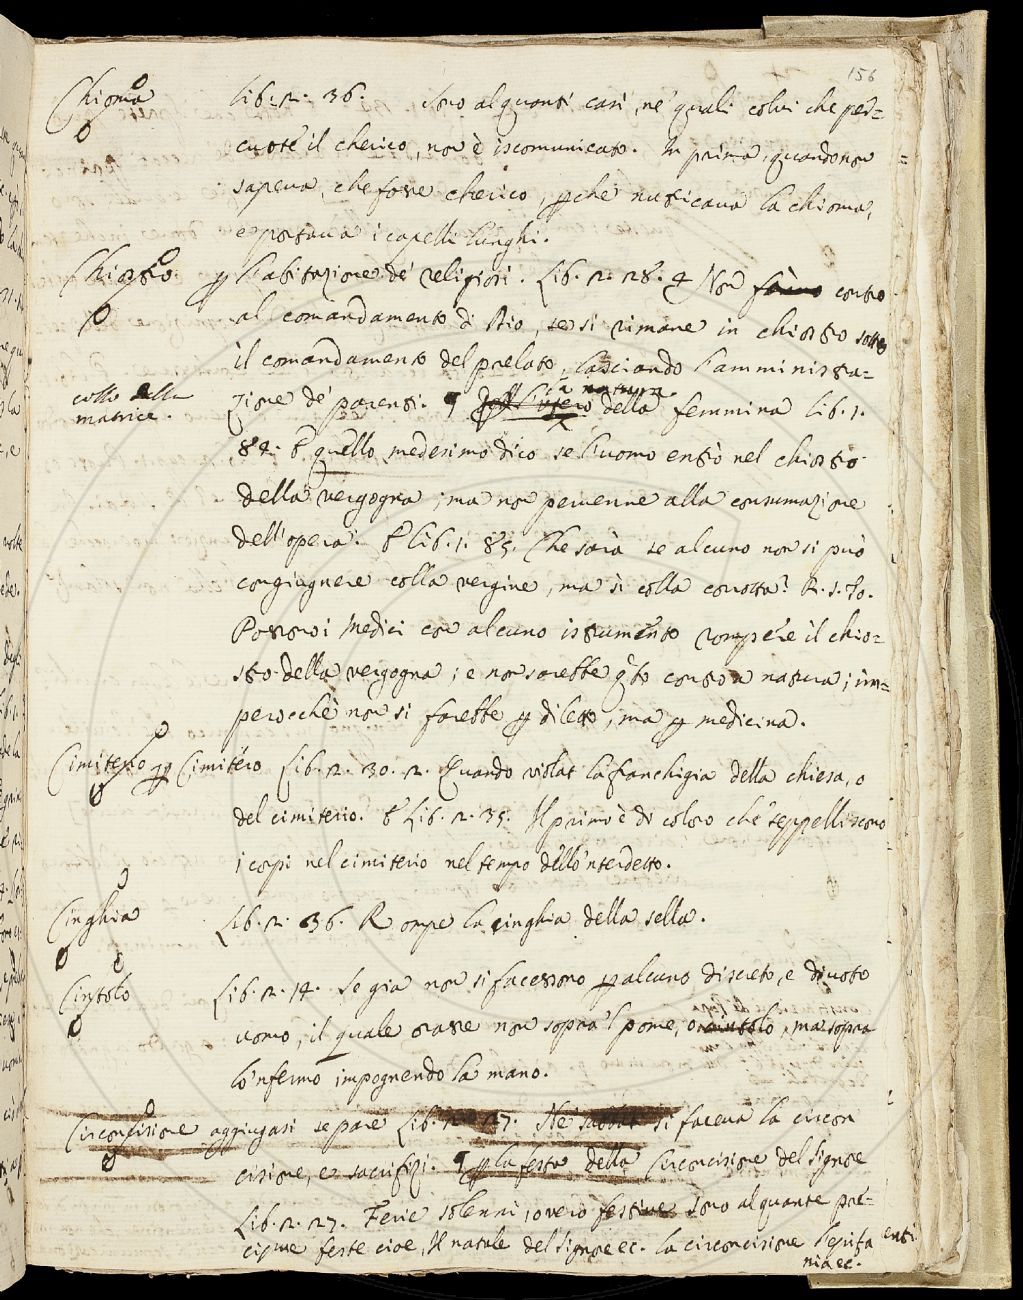 156
Chioma lib. 2. 36. Sono alquanti casi, ne' quali colui che per=
cuote il cherico, non è iscomunicato. In prima, quando non
sapeva, che fosse cherico, perchè nutricava la chioma,
e portava i capelli lunghi.
Chiostro. per l'abitazione de' religiosi. Lib. 2. 28. 4 Non contro
al comandamento di Dio, se si rimane in chiostro sotto
il comandamento del prelato, lasciando l'amministra=
collo della matrice. zione de' parenti. ¶ per l'utero la natura della femmina lib. 1.
84. E quello medesimo dico se l'uomo entrò nel chiostro
della vergogna, ma non pervenne alla consumazione
dell'opera. E lib. 1. 85. Che sarà se alcuno non si può
congiugnere colla vergine, ma sì colla corrotta? R. s. To.
Possono i Medici con alcuno istrumento rompere il chio=
stro della vergogna; e non sarebbe q.to contro a natura; im=
perocchè non si farebbe per diletto, ma per medicina.
Cimiterio per Cimitéro Lib. 2. 30. 2. Quando violat la franchigia della chiesa, o
del cimiterio. E Lib. 2. 35. Il primo è di coloro che seppelliscono
i corpi nel cimiterio nel tempo dello 'nterdetto.
Cinghia Lib. 2. 36. Rompe la cinghia della sella.
Lib. 2. 14. Se gia non si facessono per alcuno discreto, e divoto
uomo, il quale orasse non sopra 'l pome, o ma sopra
lo 'nfermo impognendo la mano.
Circoncisione aggiugasi se pare Lib. 2. 27. Ne' sabbati si faceva la circon
cisione, e sacrifizi. ¶ per la festa della Circoncisione del Signore
Lib. 2. 27. Ferie solenni, overo festive sono alquante pre=
cipue feste cioe, Il natale del Signore ec. la circoncisione
nia ec.